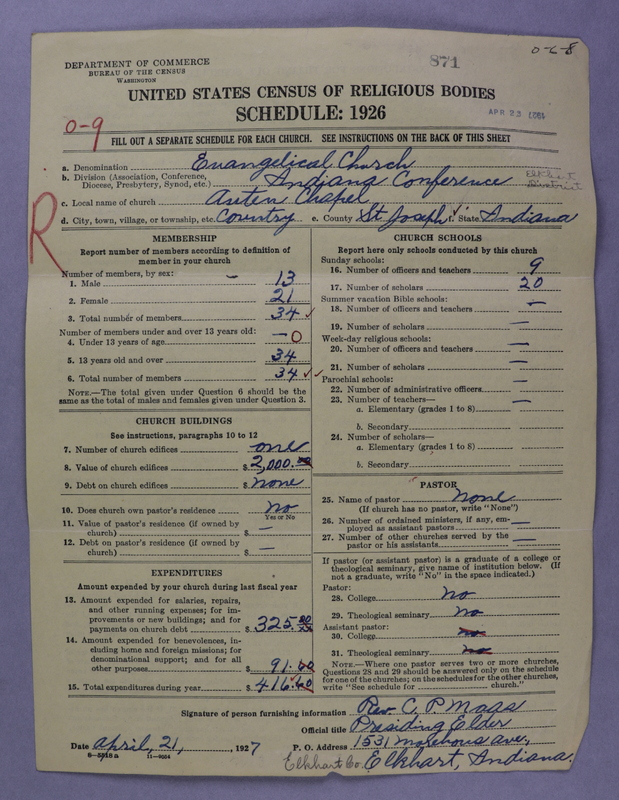 0-6-8
DEPARTMENT OF COMMERCE
BUREAU OF THE CENSUS
WASHINGTON
871
UNITED STATES CENSUS OF RELIGIOUS BODIES
SCHEDULE: 1926
APR 23
0-9
FILL OUT A SEPARATE SCHEDULE FOR EACH CHURCH. SEE INSTRUCTIONS ON THE BACK OF THIS SHEET
a. Denomination Evangelical Church
b. Division (Association, Conference, Diocese, Presbytery, Synod, etc.) Indiana Conference Elkhart District
c. Local name of church Auten Chapel
d. City, town, village, or township, etc. Coventry e. County St. Joseph f. State Indiana
R
MEMBERSHIP
Report number of members according to definition of
member in your church
Number of members, by sex:
1. Male 13
2. Female 21
3. Total number of members 34 ✓
Number of members under and over 13 years old:
4. Under 13 years of age — 0
5. 13 years old and over 34
6. Total number of members 34 ✓✓
NOTE.—The total given under Question 6 should be the
same as the total of males and females given under Question 3.
CHURCH BUILDINGS
See instructions, paragraphs 10 to 12
7. Number of church edifices one
8. Value of church edifices $ 2,000.00
9. Debt on church edifices $ none
10. Does church own pastor's residence no
Yes or No
11. Value of pastor's residence (if owned by
church) $ —
12. Debt on pastor's residence (if owned by
church) $ —
EXPENDITURES
Amount expended by your church during last fiscal year
13. Amount expended for salaries, repairs,
and other running expenses; for im-
provements or new buildings; and for
payments on church debt $ 325.
14. Amount expended for benevolences, in-
cluding home and foreign missions; for
denominational support; and for all
other purposes $ 91.60
15. Total expenditures during year $ 416.60
CHURCH SCHOOLS
Report here only schools conducted by this church
Sunday schools:
16. Number of officers and teachers 9
17. Number of scholars 20
Summer vacation Bible schools:
18. Number of officers and teachers —
19. Number of scholars —
Week-day religious schools:
20. Number of officers and teachers —
21. Number of scholars —
Parochial schools:
22. Number of administrative officers —
23. Number of teachers—
a. Elementary (grades 1 to 8)
b. Secondary
24. Number of scholars—
a. Elementary (grades 1 to 8)
b. Secondary
PASTOR
25. Name of pastor none
(If church has no pastor, write "None")
26. Number of ordained ministers, if any, em-
ployed as assistant pastors —
27. Number of other churches served by the
pastor or his assistants —
If pastor (or assistant pastor) is a graduate of a college or
theological seminary, give name of institution below. (If
not a graduate, write "No" in the space indicated.)
Pastor:
28. College no
29. Theological seminary no
Assistant pastor:
30. College no
31. Theological seminary no
NOTE.—Where one pastor serves two or more churches,
Questions 28 and 29 should be answered only on the schedule
for one of the churches; on the schedules for the other churches,
write "See schedule for church."
Signature of person furnishing information Rev. C. P. Maas
Official title Presiding Elder
Date April, 21, 1927 P. O. Address 1531 ave.,
11-9004 Elkhart Co. Elkhart, Indiana.